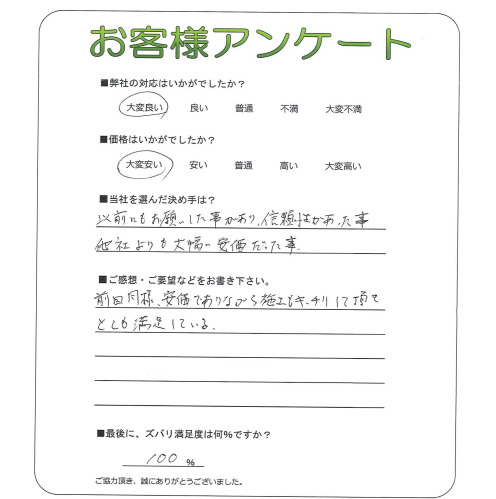 お客様アンケート
■弊社の対応はいかがでしたか？
大変良い 良い 普通 不満 大変不満
■価格はいかがでしたか？
大変安い 安い 普通 高い 大変高い
■当社を選んだ決め手は？
以前にもお願いした事があり、信頼性があった事
他社よりも大幅に安価だった事.
■ご感想・ご要望などをお書き下さい。
前回同様、安価でありながら施工もキッチリして頂き
とても満足している。
■最後に、ズバリ満足度は何％ですか？
100 %
ご協力頂き、誠にありがとうございました。